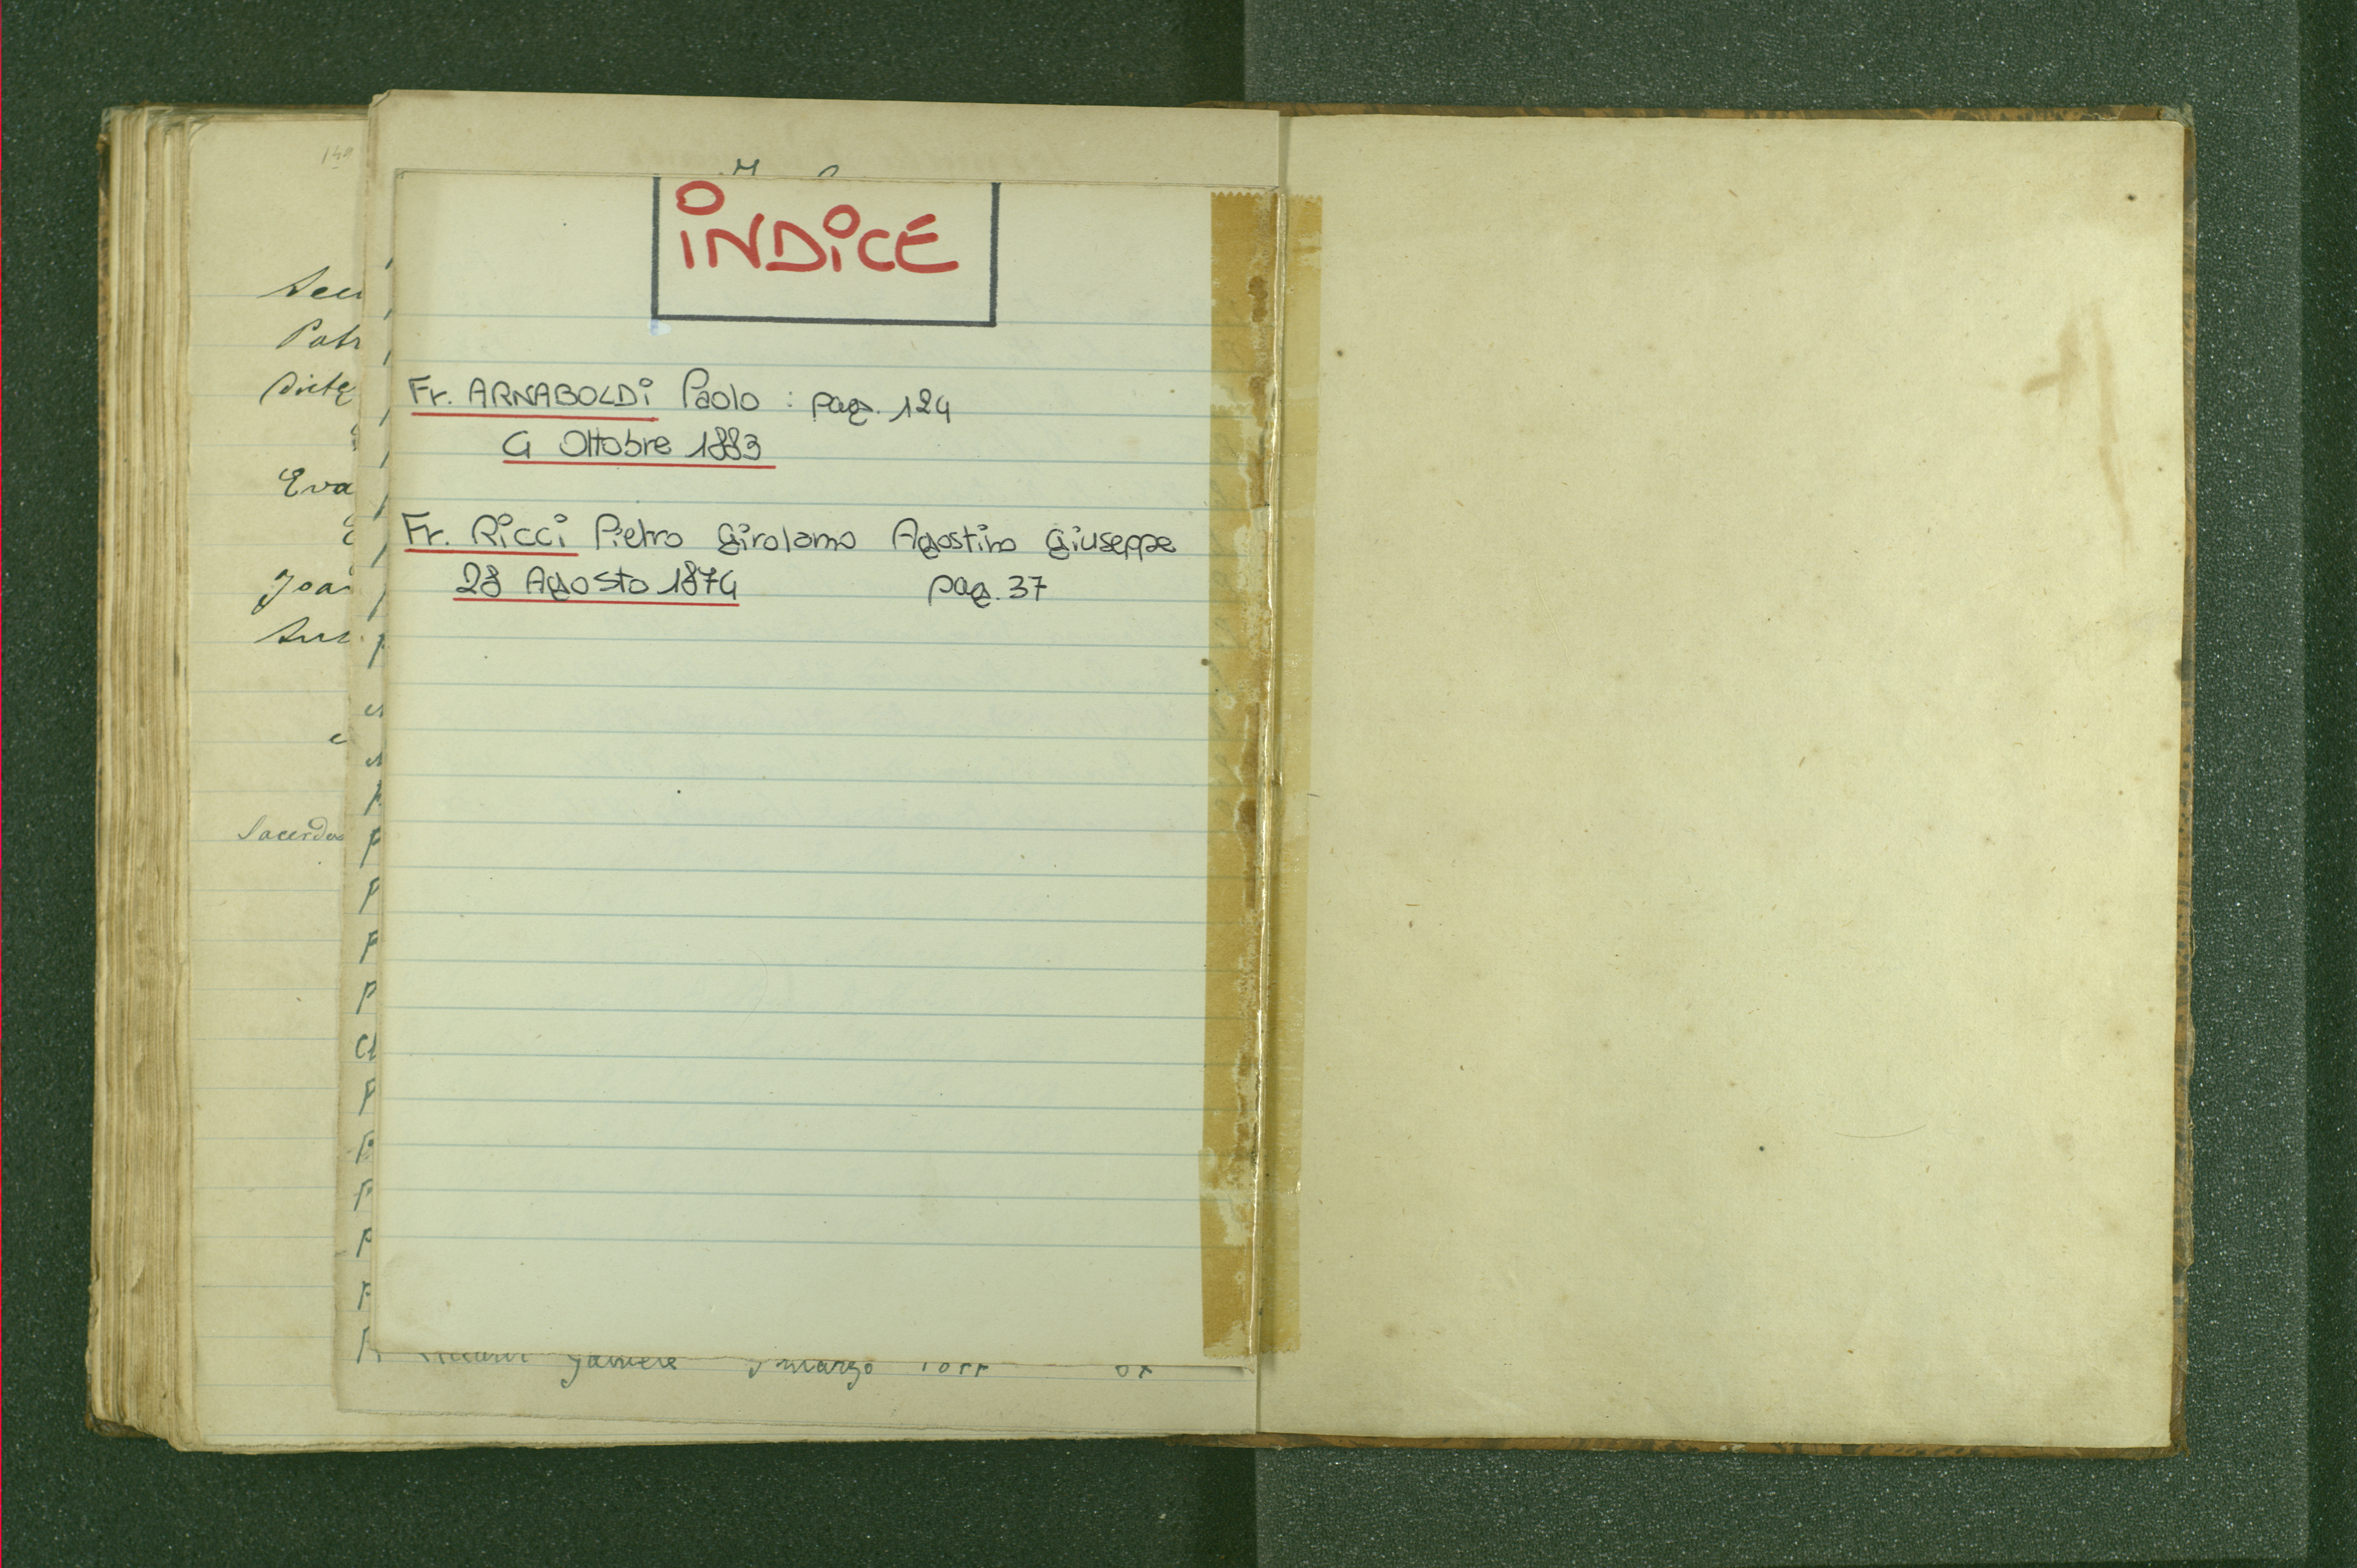 INDICE
Fr. ARNABOLDI Paolo : pag. 124
4 Ottobre 1883
Fr. RICCI Pietro Girolamo Agostino Giuseppe
28 Agosto 1874 pag. 37
Patr
Eva
Joa
Sacerdo
marzo